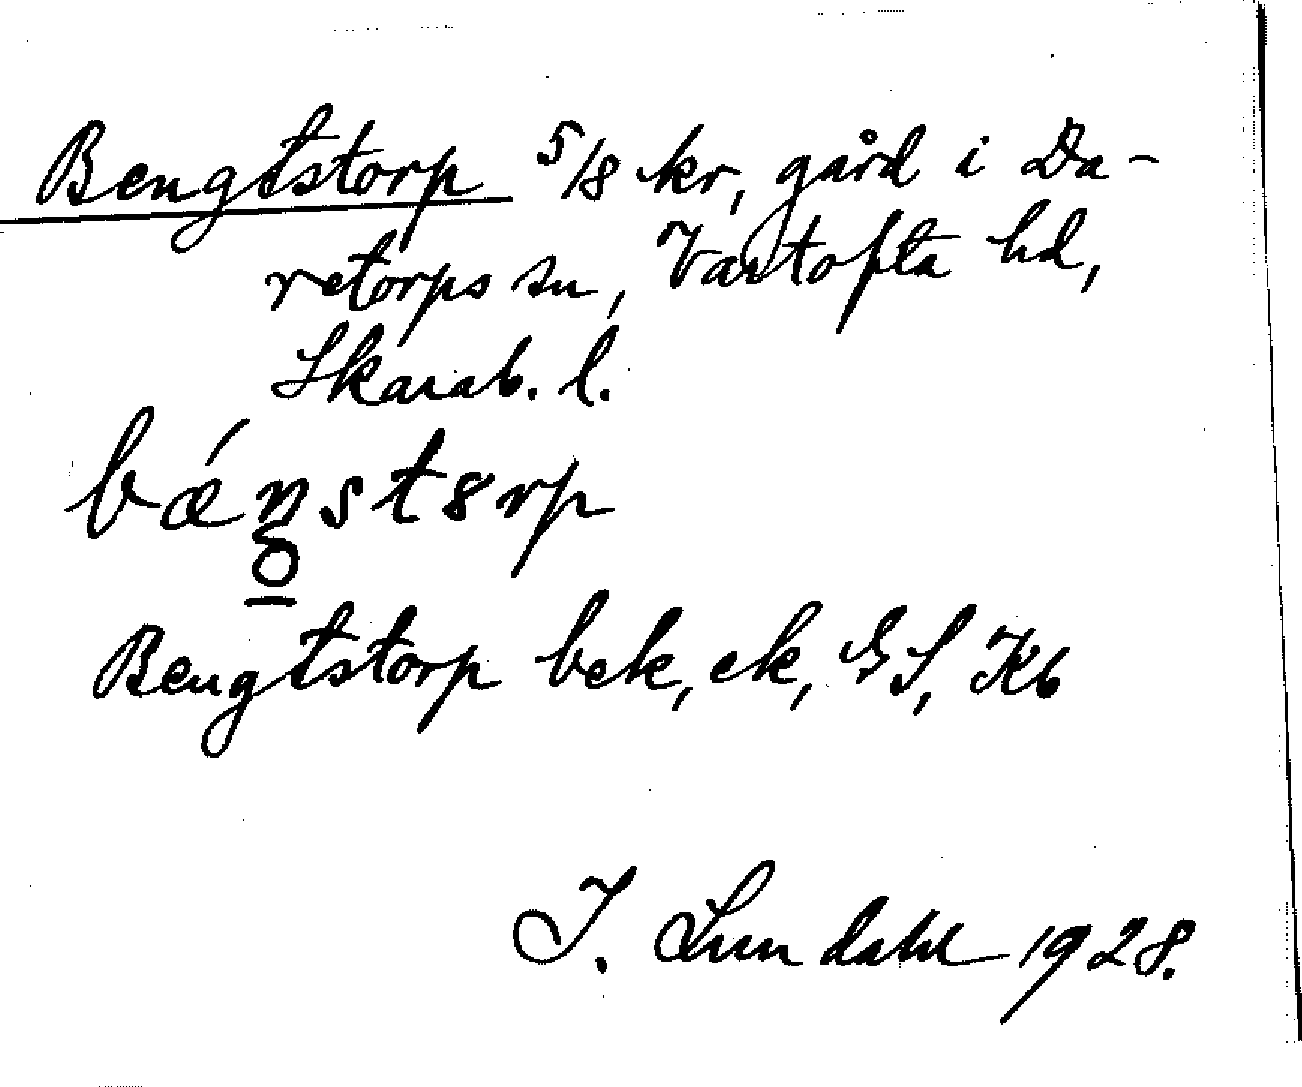 Bengtstorp 5/8 kr, gård i Da-
retorps sn, Vartofta hd,
Skarab. l.
Bengtstorp bek, ek, GS, Kb
I. Lundahl 1928.